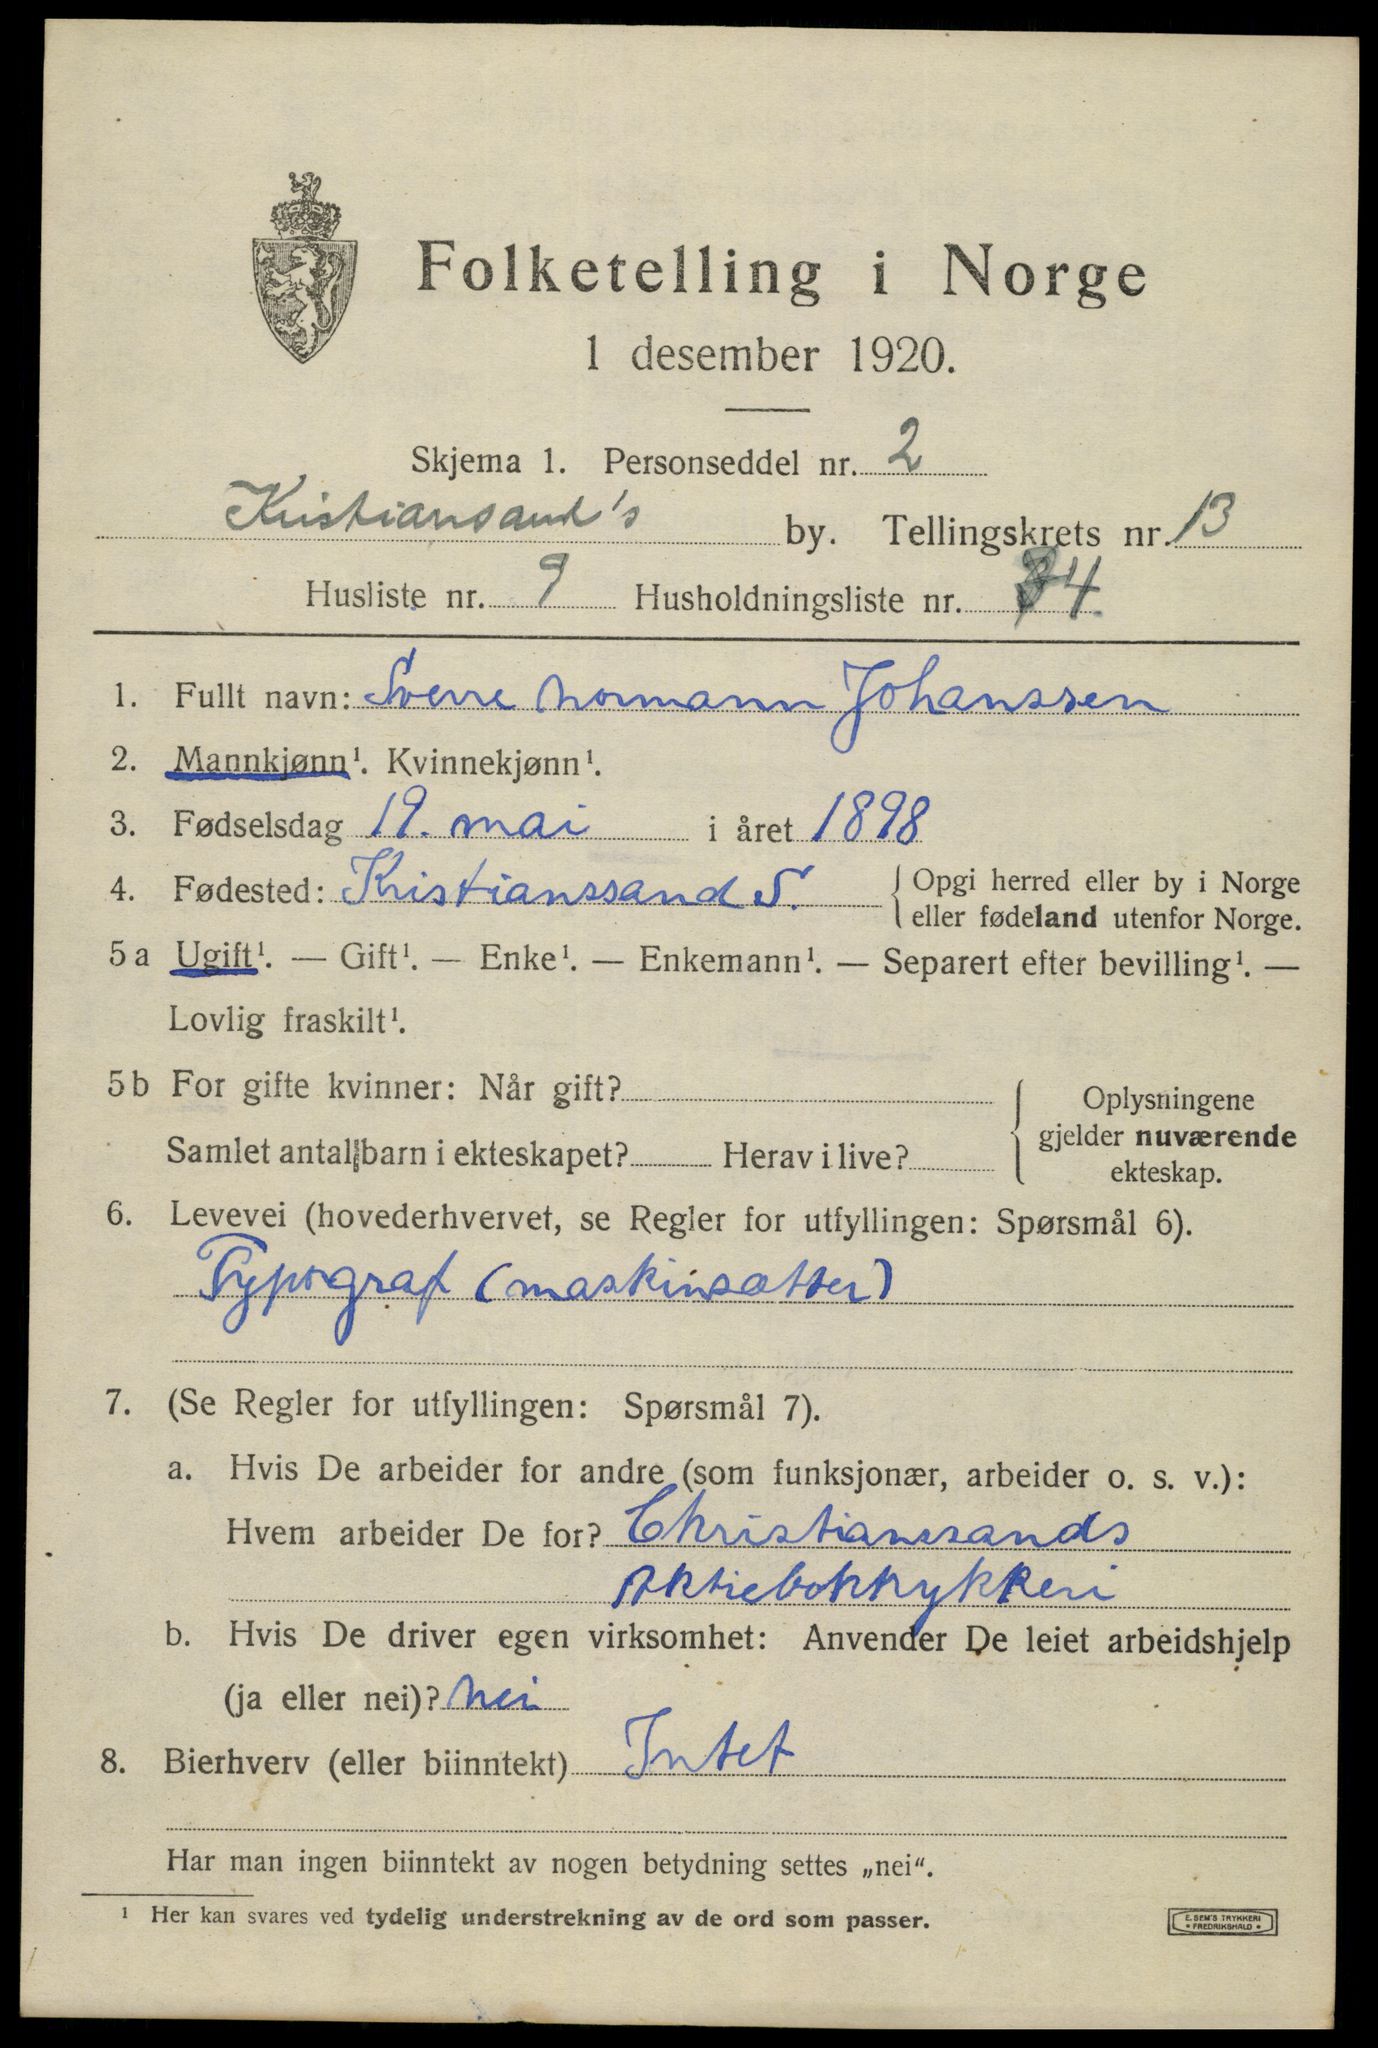 Folketelling i Norge
1 desember 1920.
Skjema 1. Personseddel nr. 2
Kristiansand's by. Tellingskrets nr. 13
Husliste nr. 9 Husholdningsliste nr. 4
1. Fullt navn: Sverre Normann Johanssen
2. Mannkjønn¹. Kvinnekjønn¹.
3. Fødselsdag 19. mai i året 1898
4. Fødested: Kristianssand S. Opgi herred eller by i Norge
eller fødeland utenfor Norge.
5a Ugift¹. — Gift¹. — Enke¹. — Enkemann¹. — Separert efter bevilling¹. —
Lovlig fraskilt¹.
5b For gifte kvinner: Når gift?
Samlet antal barn i ekteskapet? Herav i live?
Oplysningene
gjelder nuværende
ekteskap.
6. Levevei (hovederhvervet, se Regler for utfyllingen: Spørsmål 6).
Typograf (maskinsætter)
7. (Se Regler for utfyllingen: Spørsmål 7).
a. Hvis De arbeider for andre (som funksjonær, arbeider o. s. v.):
Hvem arbeider De for? Christianssands
Aktiebokkrykkeri
b. Hvis De driver egen virksomhet: Anvender De leiet arbeidshjelp
(ja eller nei)? Nei
8. Bierhverv (eller biinntekt) Intet
Har man ingen biinntekt av nogen betydning settes „nei“.
¹ Her kan svares ved tydelig understrekning av de ord som passer.
E. SEM'S TRYKKERI
* FREDRIKSHALD *